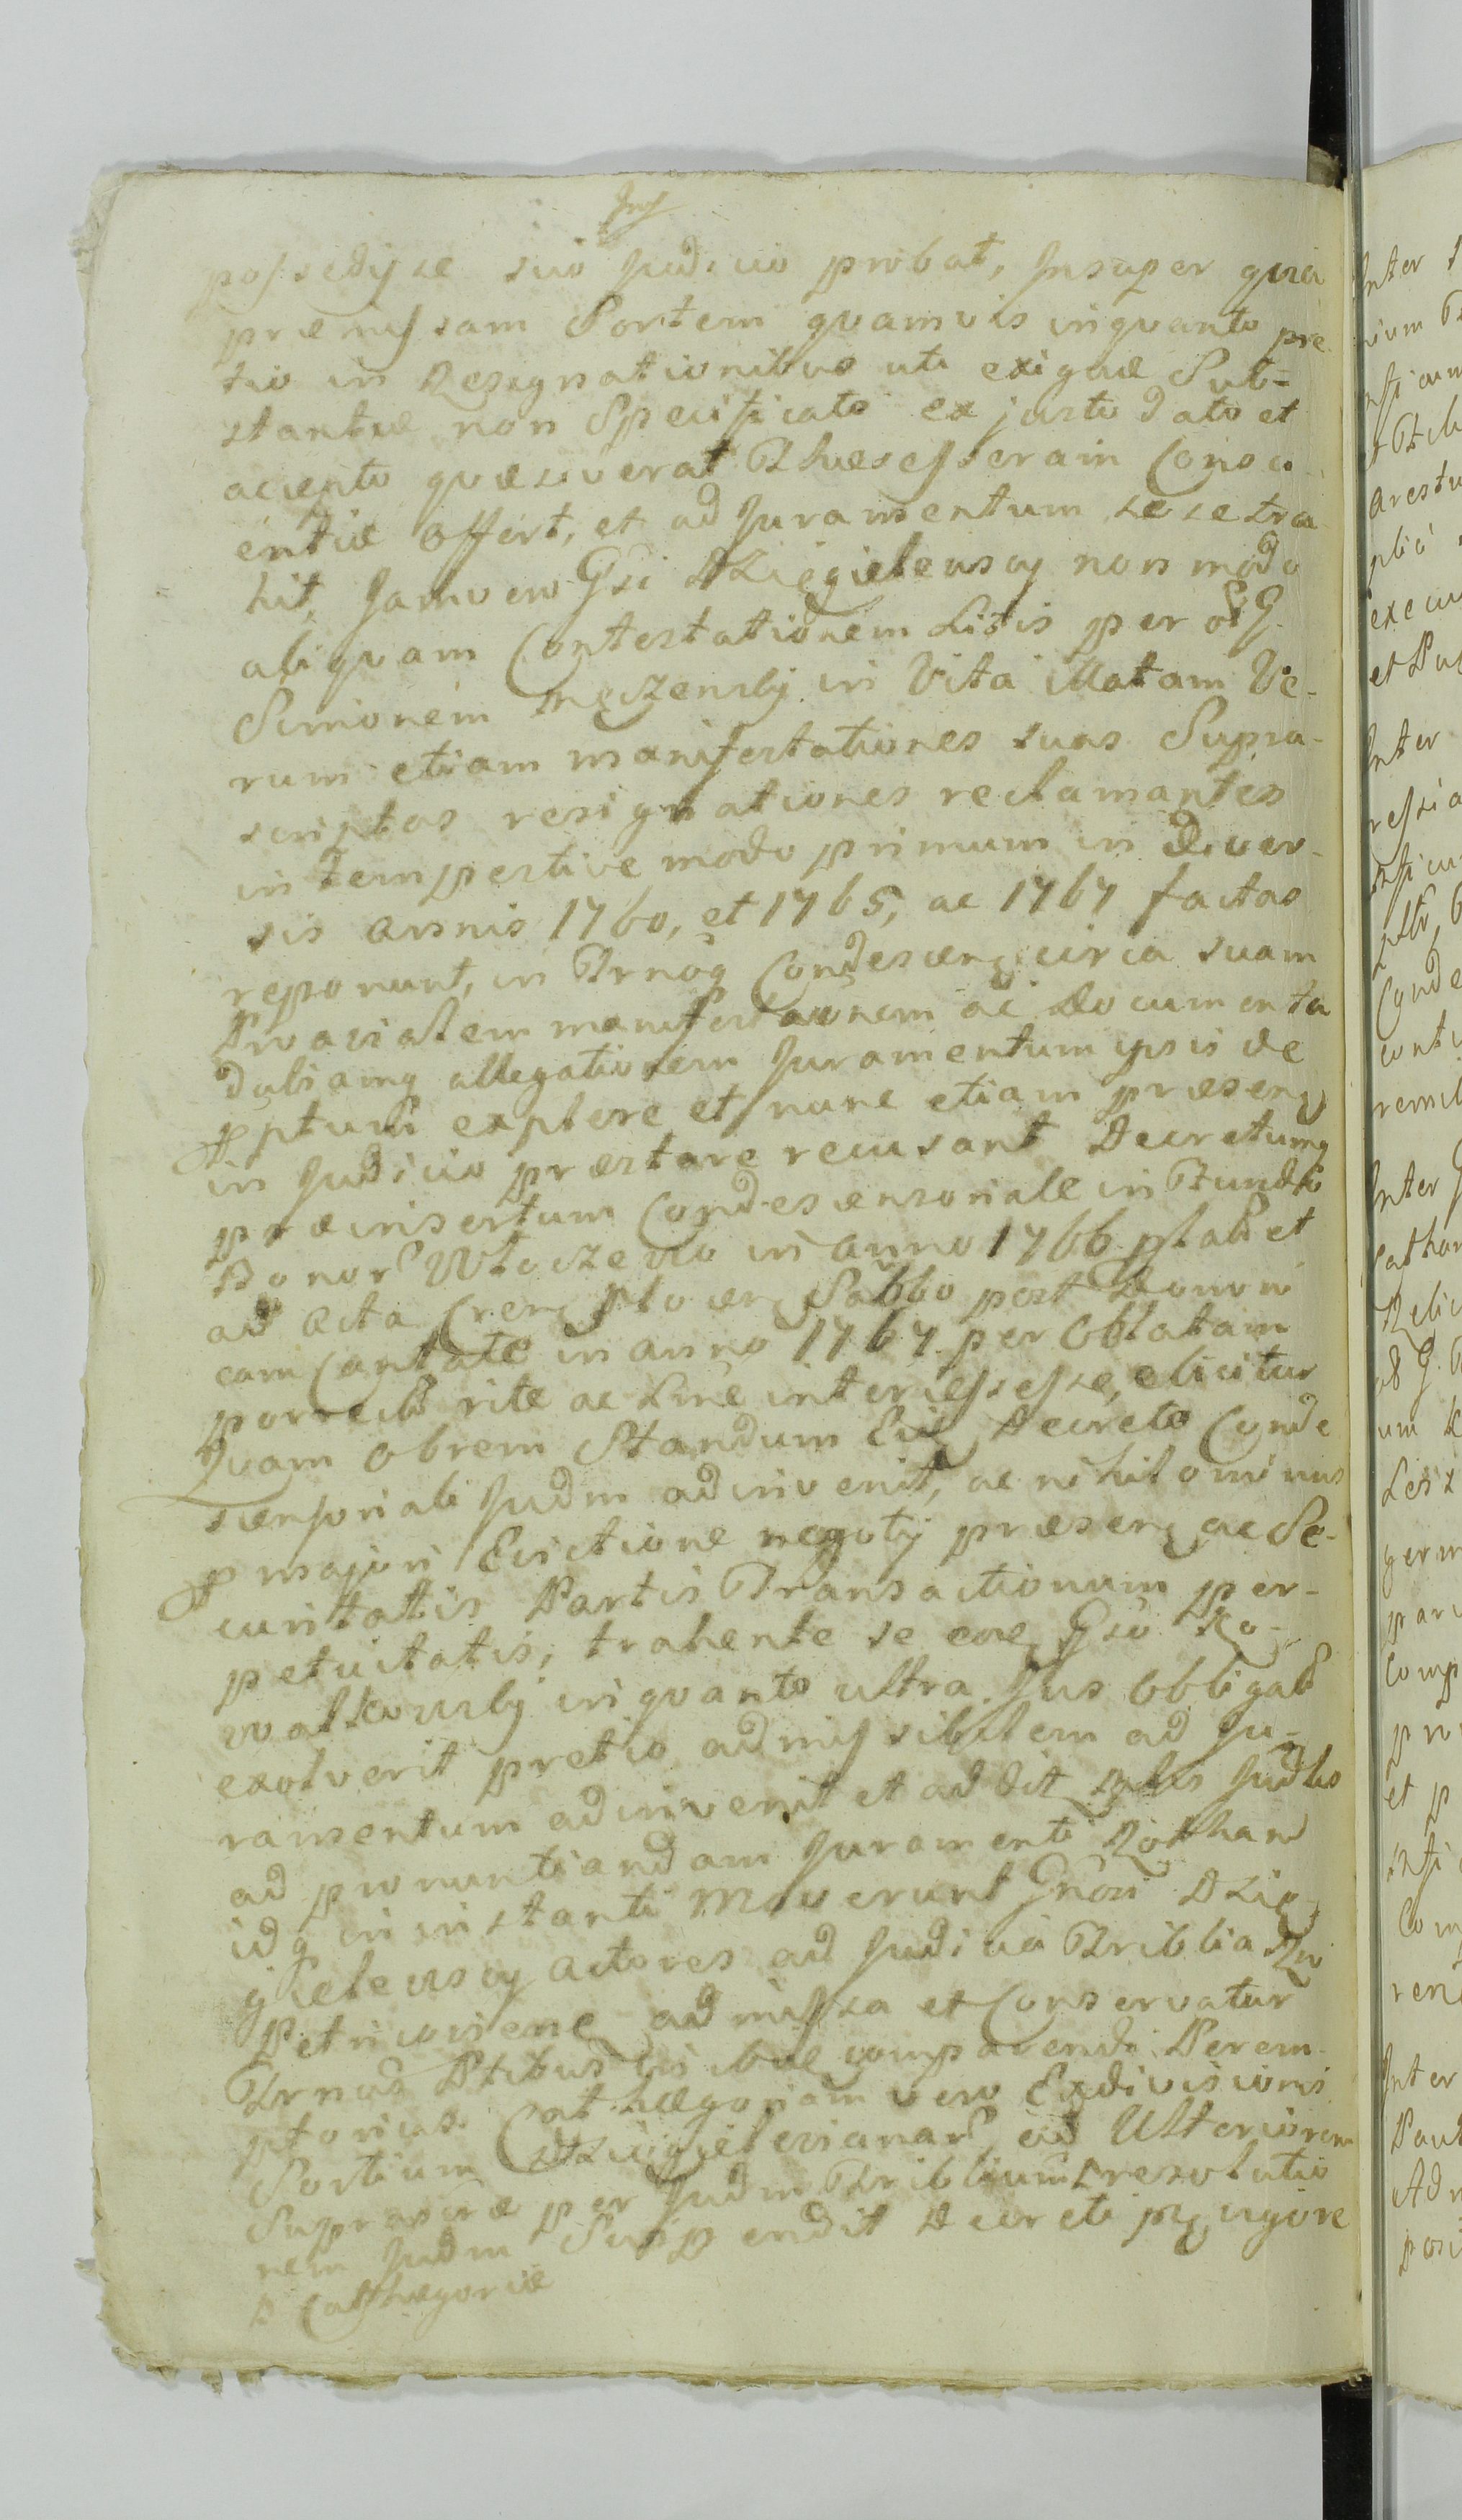 possedisse suo Judicio probat, Insuper quia
præmissam Sortem quamvis inquanto pre
tio in Resignationibus uti exiguæ Sub=
stantiæ non Specificato ex justo dato et
accepto quæsiverat Consci
entiæ offert, et ad Juramentum sese tra
hit, Jamvero Gsi Dzięgielewscy non modo
aliquam Contestationem Litis per olim G.
Simonem in Vita illatam Ve-
rum etiam manifestationes suas Supra-
scriptas resignationes reclamantes
intempestive modo primum in Diver-
sis annis 1760, et 1765, ac 1767 factas
reponunt, in Trnoq Condescen circa suam
manifestaonem ac Documenta
dubiamq allegationem Juramentum ipsis de
ptum explere et nunc etiam præsen
in Judicio præstare recusant Decretumq
præinsertum Condescensoriale in Fundo
Bonor in anno 1766 plat et
ad Acta Cren Plocen Sabbo post Domini
cam Cantate in anno 1767 per Oblatam
porrect rite ac Lime intercessisse, elicitur
Quam obrem Standum Eidē Decreto Conde
scensoriali Judm adinvenit, ac nihilominus
p majori Evictione negotij præsen ac Se-
curitatis Partis Transactionum per-
petuitatis, trahente se eoē Gso Ko-
walkowskij inquanto ultra Jus obligat
exolverit pretio admissibilem ad Ju-
ramentum adinvenit et addit Judlis
ad pronuntiandam Juramenti Rotham
idq in instanti Moverunt Gnosi Dzię-
gielewscy actores ad Judicia Triblia Rni
Petricovien admissa et Conservatur
Trnus Ptibus ibidē comparendi Perem-
ptorius. Cathægoriam vero Exdivisionis
Sortium Dzięgielevianar ad Ulteriorem
Supra per Judm Triblium resolutio
nem Judm Suspendit Decreti pn vigore
D Cathægoriæ